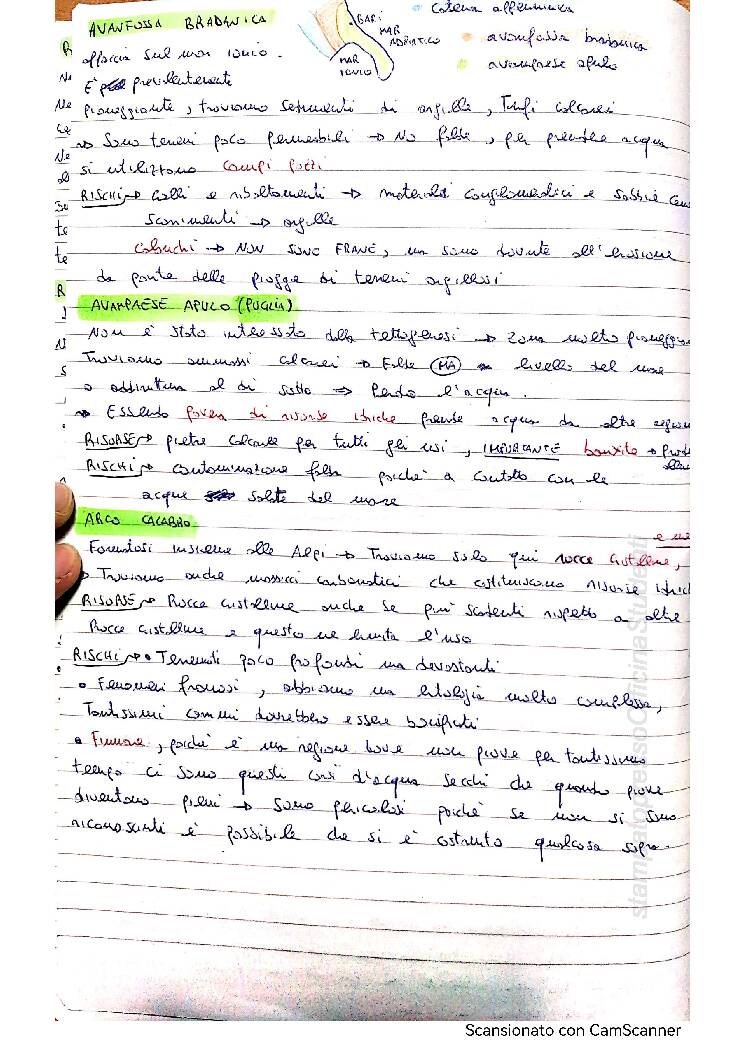 AVANFOSSA BRADANICA
BARI
MAR ADRIATICO
MAR IONIO
catena appenninica
avanfossa bradanica
avampaese apulo
affaccia sul mar ionio.
È prevalentemente
pianeggiante, troviamo sedimenti di argille, Tufi calcarei
→ Sono terreni poco permeabili → No falde, per prendere acqua
si utilizzano campi pozzi
RISCHI → Crolli e ribaltamenti → materiali conglomeratici e sabbie
Scorrimenti → argille
Calanchi → NON SONO FRANE, ma sono dovute all'erosione
da parte delle piogge di terreni argillosi
AVAMPAESE APULO (PUGLIA)
Non è stato interessato dalla tettogenesi → Zona molto
Troviamo ammassi calcarei → Falde MA livello del mare
o addirittura al di sotto ⇒ Perdo l'acqua.
→ Essendo povera di risorse idriche prende acqua da altre
RISORSE → pietre calcaree per tutti gli usi, IMPORTANTE bauxite
RISCHI → contaminazione falda poiché a contatto con le
acque salate del mare
ARCO CALABRO
Formatosi insieme alle Alpi → Troviamo solo qui rocce cristalline,
→ Troviamo anche massicci carbonatici che costituiscono risorse
RISORSE → Rocce cristalline anche se più scadenti rispetto a altre
Rocce cristalline e questo ne limita l'uso
RISCHI → • Terremoti poco profondi ma devastanti
• Fenomeni franosi, abbiamo una litologia molto complessa,
Tantissimi comuni dovrebbero essere bonificati
• Fiumare, poiché è una regione dove non piove per tantissimo
tempo ci sono questi corsi d'acqua secchi che quando piove
diventano pieni → Sono pericolosi poiché se non si sono
riconosciuti è possibile che si è costruito qualcosa sopra.
stampatopressoOfficinaStudenti
Scansionato con CamScanner